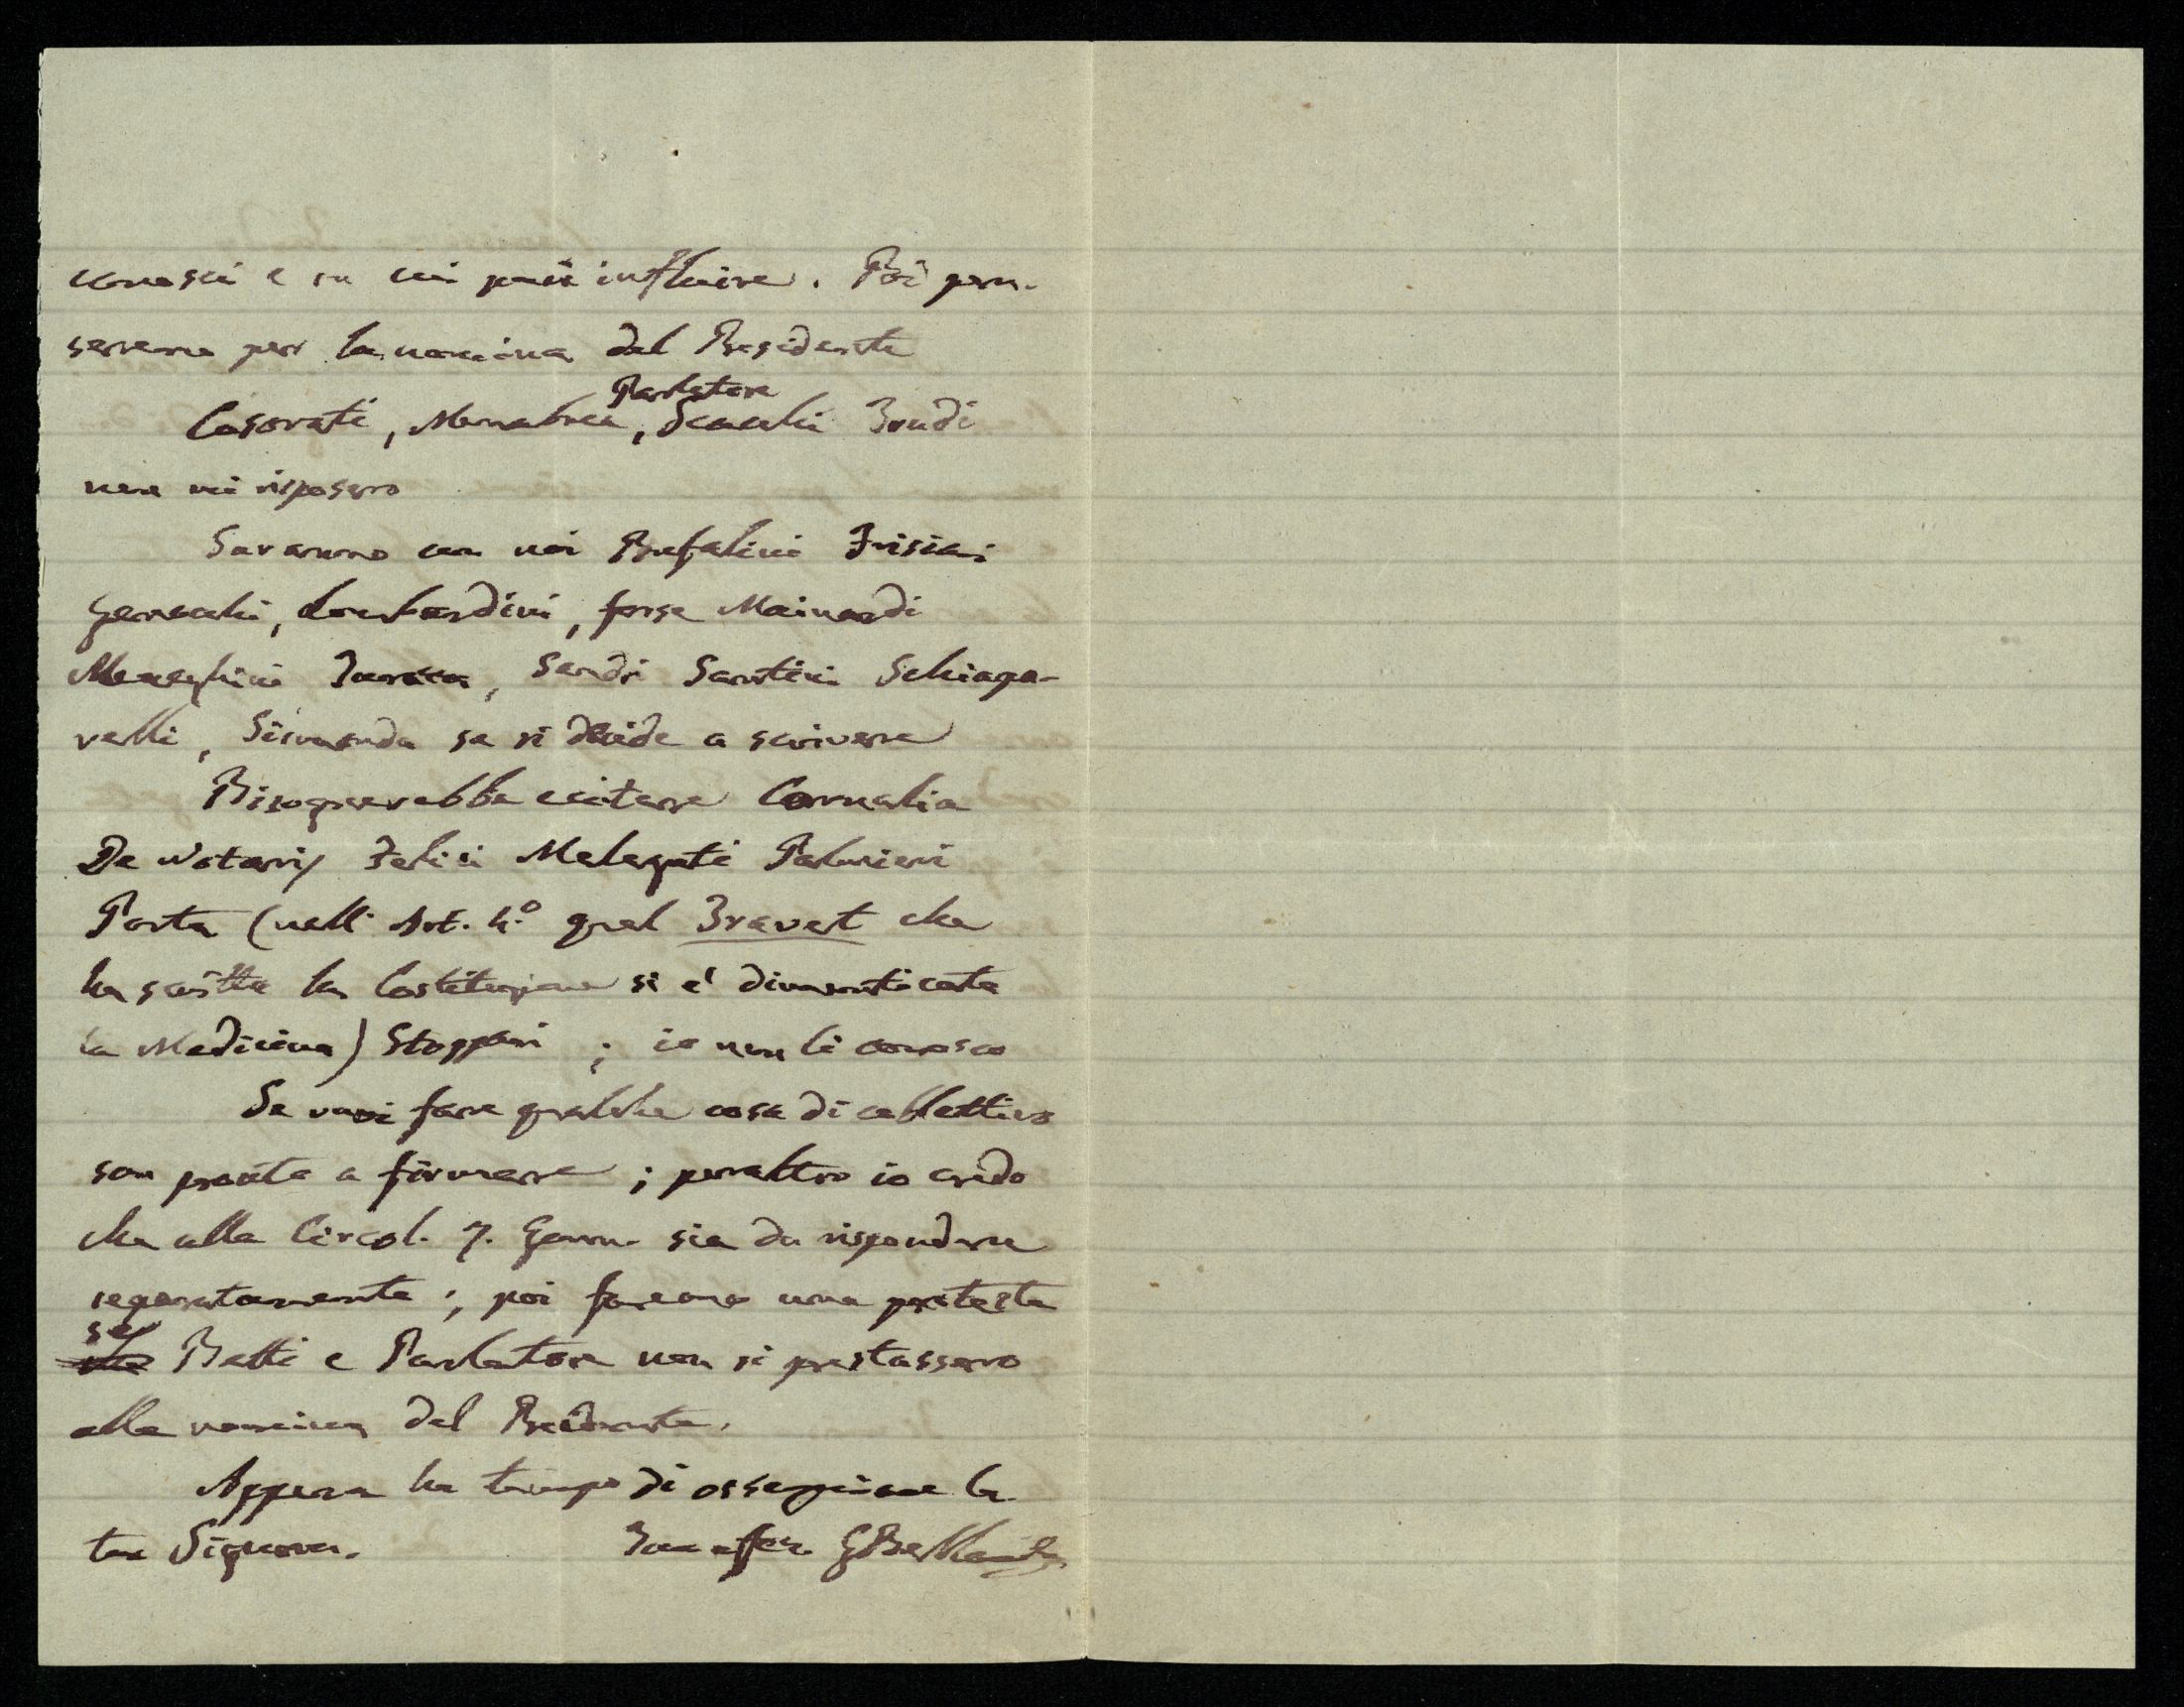 conosci e su cui puoi influire. Poi pen-
seremo per la nomina del Presidente
Parlatore
Casorati, Menabrea, Scacchi Turdi
non mi risposero
Saranno con noi Bufalini Frisiani
Genocchi, Lombardini, forse Mainardi
Meneghini, Sandri Santini Schiapa-
relli, Sismonda se si decide a scrivere
Bisognerebbe eccitare Cornalia
De Notaris Felici Melegati Palmieri
Porta (nell' Art. 4.º quel Bravet che
ha scritto la Costituzione si e' dimenticata
la Medicina) Stoppani ; io non li conosco
Se vuoi fare qualche cosa di collettivo
son pronto a firmare ; peraltro io credo
che alla Circol. 7. Genn. sia da rispondere
separatamente ; poi faremo una protesta
se
Betti e Parlatore non si prestassero
alla nomina del Presidente.
Appena ho tempo di ossequiare la
tua Signora. Tuo affez. GBellavitis